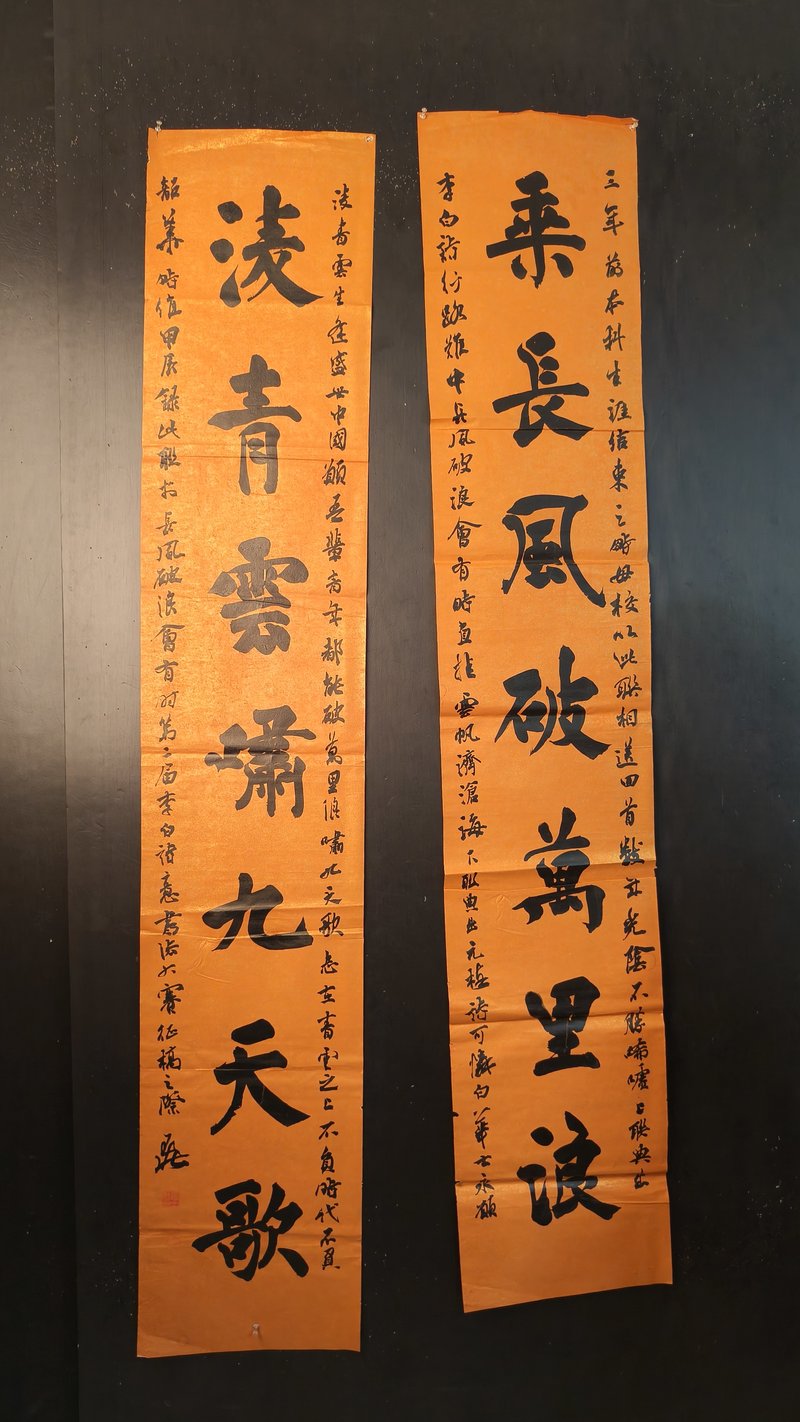 三年前本科生涯結束之時母校以此聯相送回首數年光陰不勝唏噓上聯典出
乘長風破萬里浪
李白詩行路難中長風破浪會有時直挂雲帆濟滄海下聯典出元稹詩可憐白華士永願
淩青雲生逢盛世中國願吾輩青年都能破萬里浪嘯九天歌志在青雲之上不負時代不負
淩青雲嘯九天歌
韶華時值甲辰錄此聯於長風破浪會有时第二届李白詩意書法大賽征稿之際